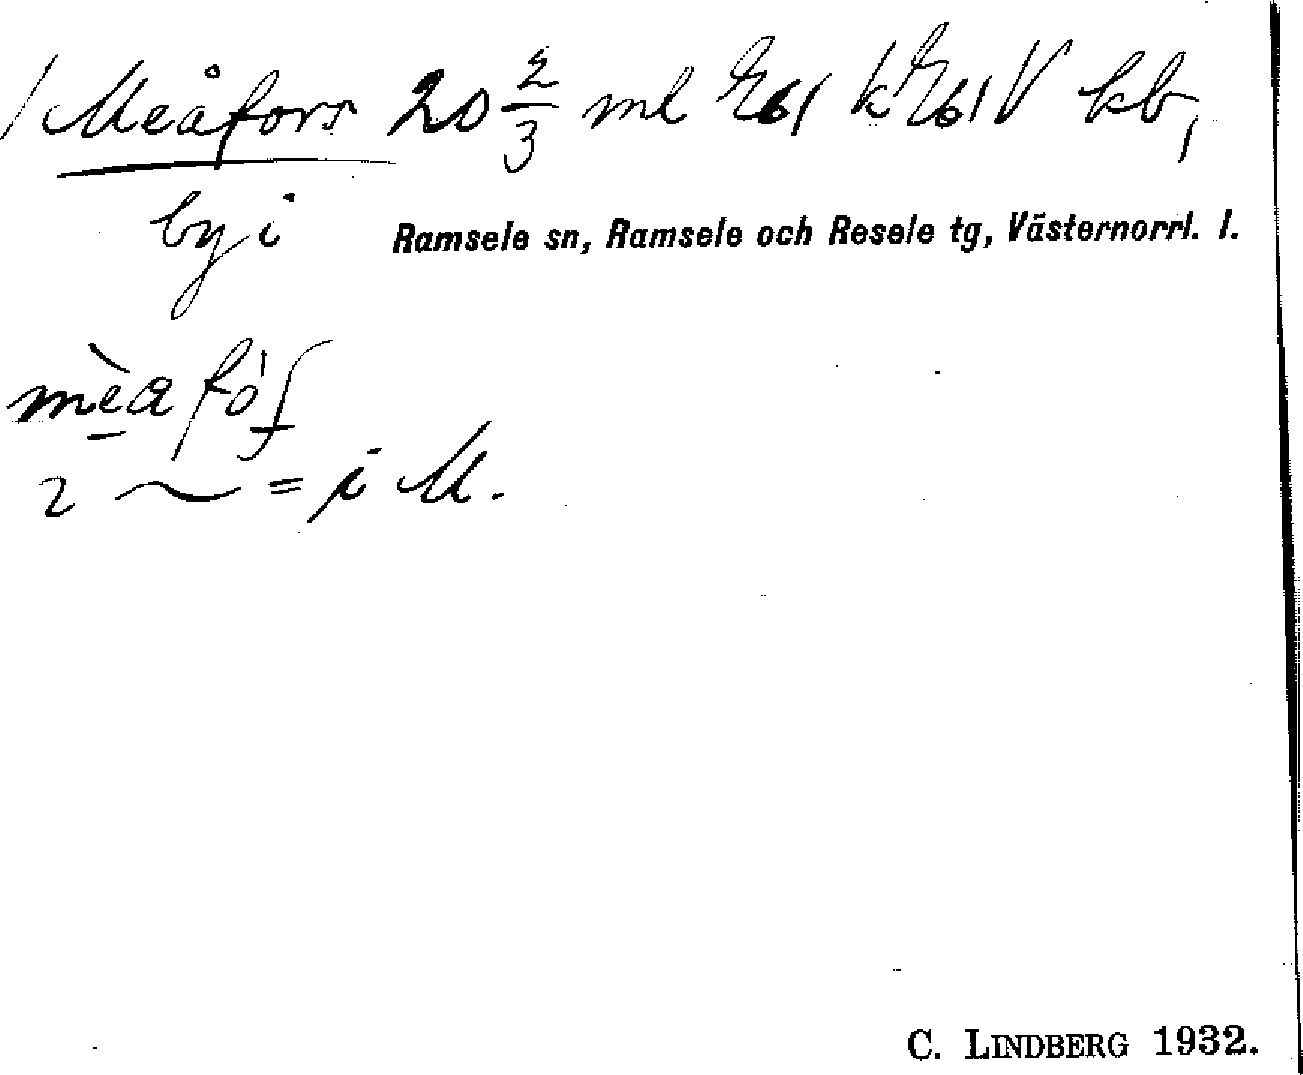 Meåfors 20 2/3 ml E61 k E61 V kb,
by i Ramsele sn, Ramsele och Resele tg, Västernorrl. l.
mèafó̀ʃ
2 ~ = i M.
C. LINDBERG 1932.